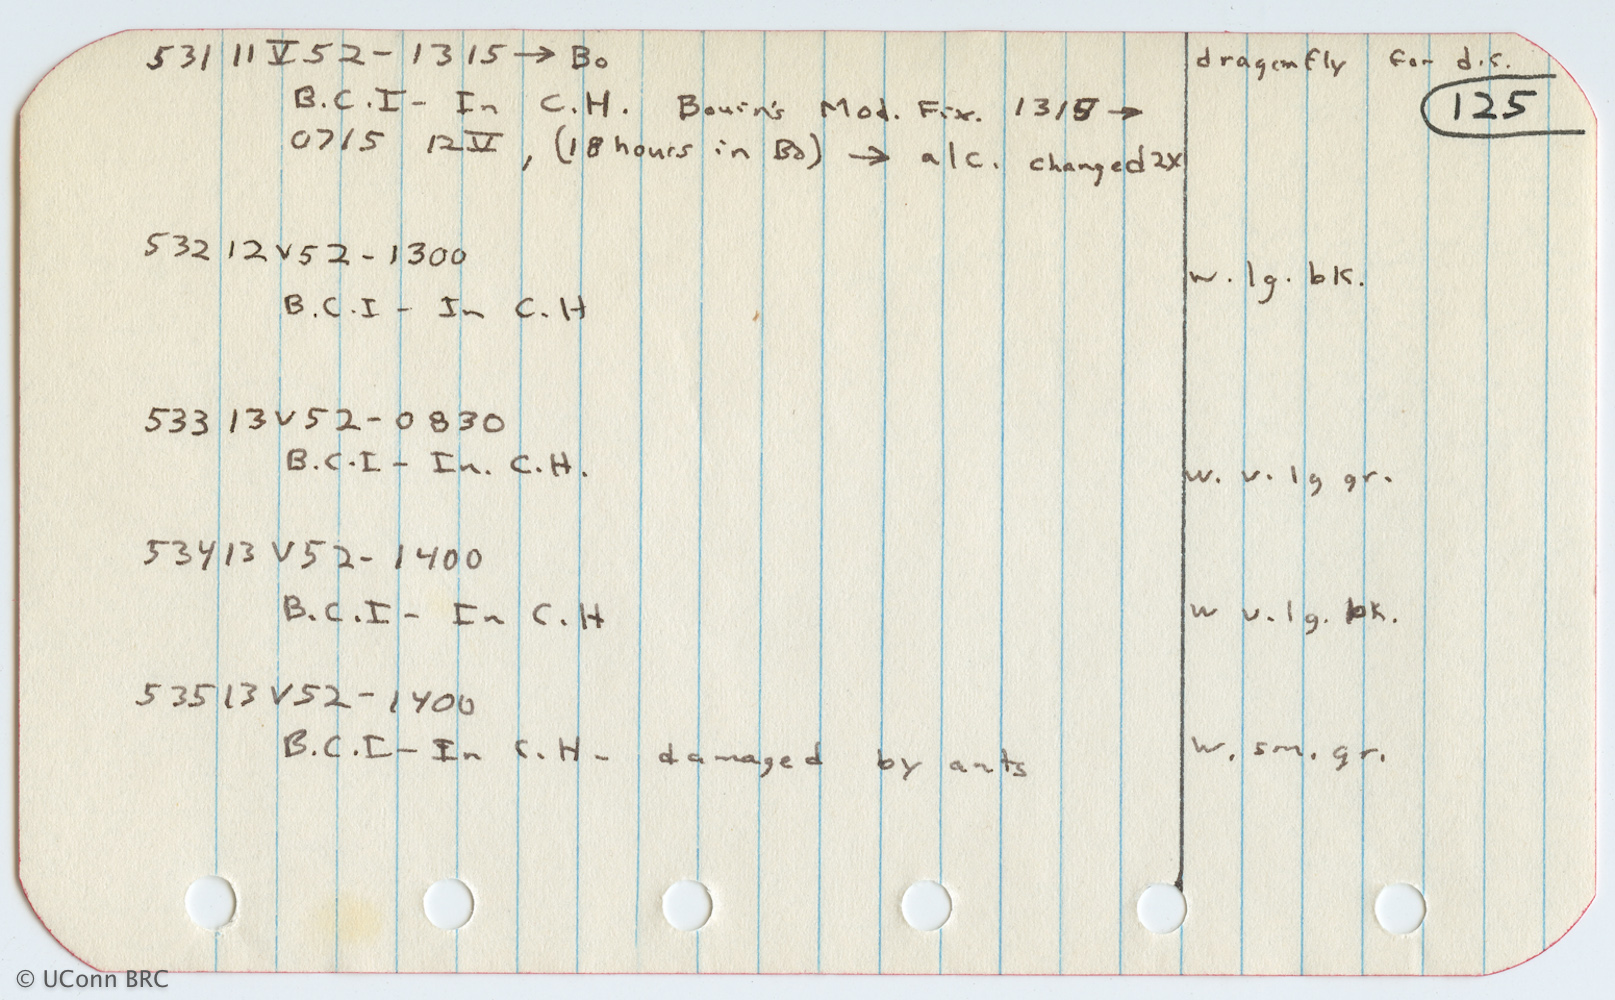 531 11 V 52 - 1315 → Bo
dragonfly for d.c.
125
B.C.I - In C.H. Bouin's Mod. Fix. 1315 →
0715 12 V, (18 hours in Bo) → alc. changed 2X
532 12 V 52 - 1300
w. lg. bk.
B.C.I - In C.H
533 13 V 52 - 0830
B.C.I - In. C.H.
w. v. lg gr.
534 13 V 52 - 1400
B.C.I - In C.H
w v. lg. bk.
535 13 V 52 - 1400
B.C.I - In C.H - damaged by ants
w. sm. gr.
© UConn BRC